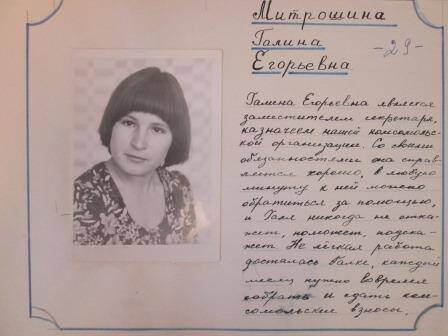 Митрошина
Галина
Егорьевна
-29-
Галина Егорьевна является
заместителем секретаря,
казначеем нашей комсомоль-
ской организации. Со своими
обязанностями она справ-
ляется хорошо, в любую
минуту к ней можно
обратиться за помощью,
и Галя никогда не отка-
жет, поможет, подска-
жет. Не лёгкая работа
досталась Галке, каждый
месяц нужно вовремя
собрать и сдать ком-
сомольские взносы.